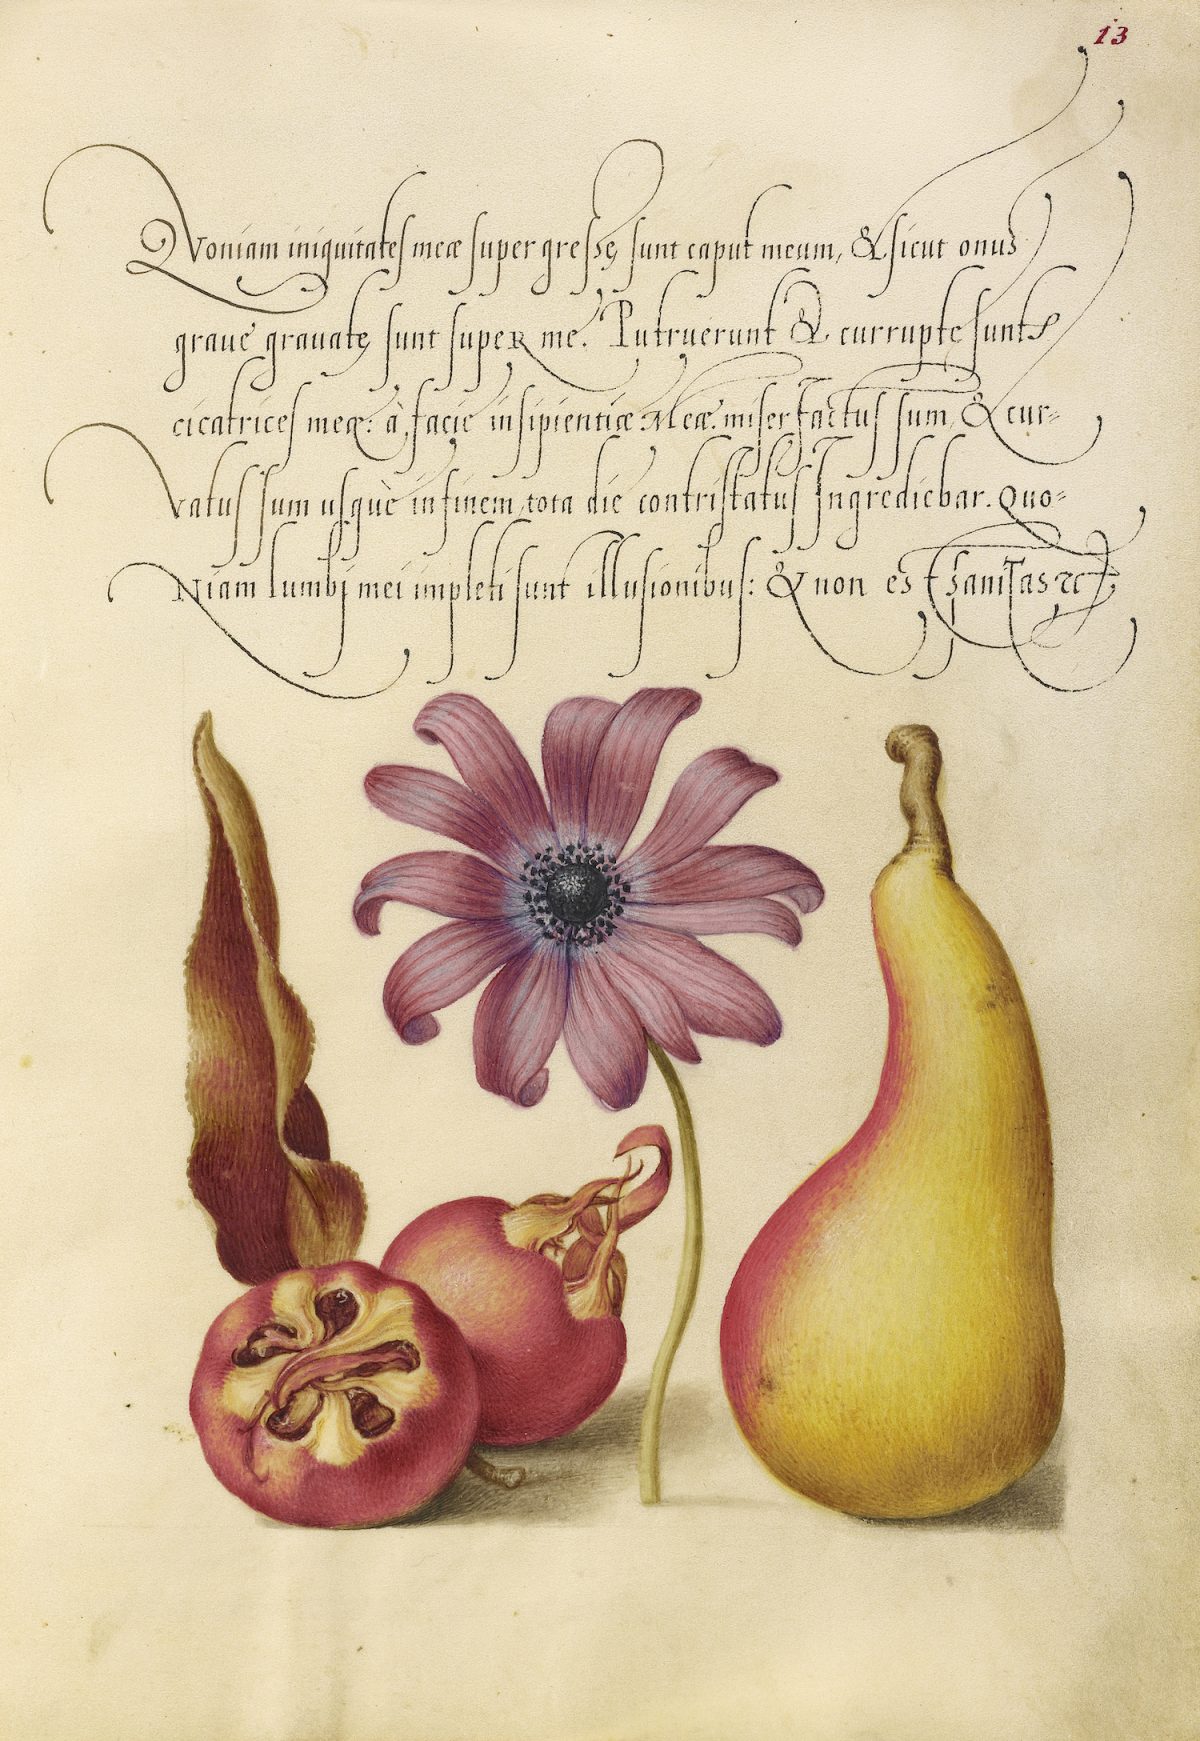 13
Quoniam iniquitates meæ super gressę sunt caput meum, & sicut onus
graue grauatę sunt super me. Putruerunt & currupte sunt
cicatrices meæ: à facie insipientiæ Meæ. miser factus sum, & cur-
vatus sum usquè in finem, tota die contristatus Ingrediebar. Quo-
Niam lumbj mei impleti sunt illusionibus: & non est sanitas &c